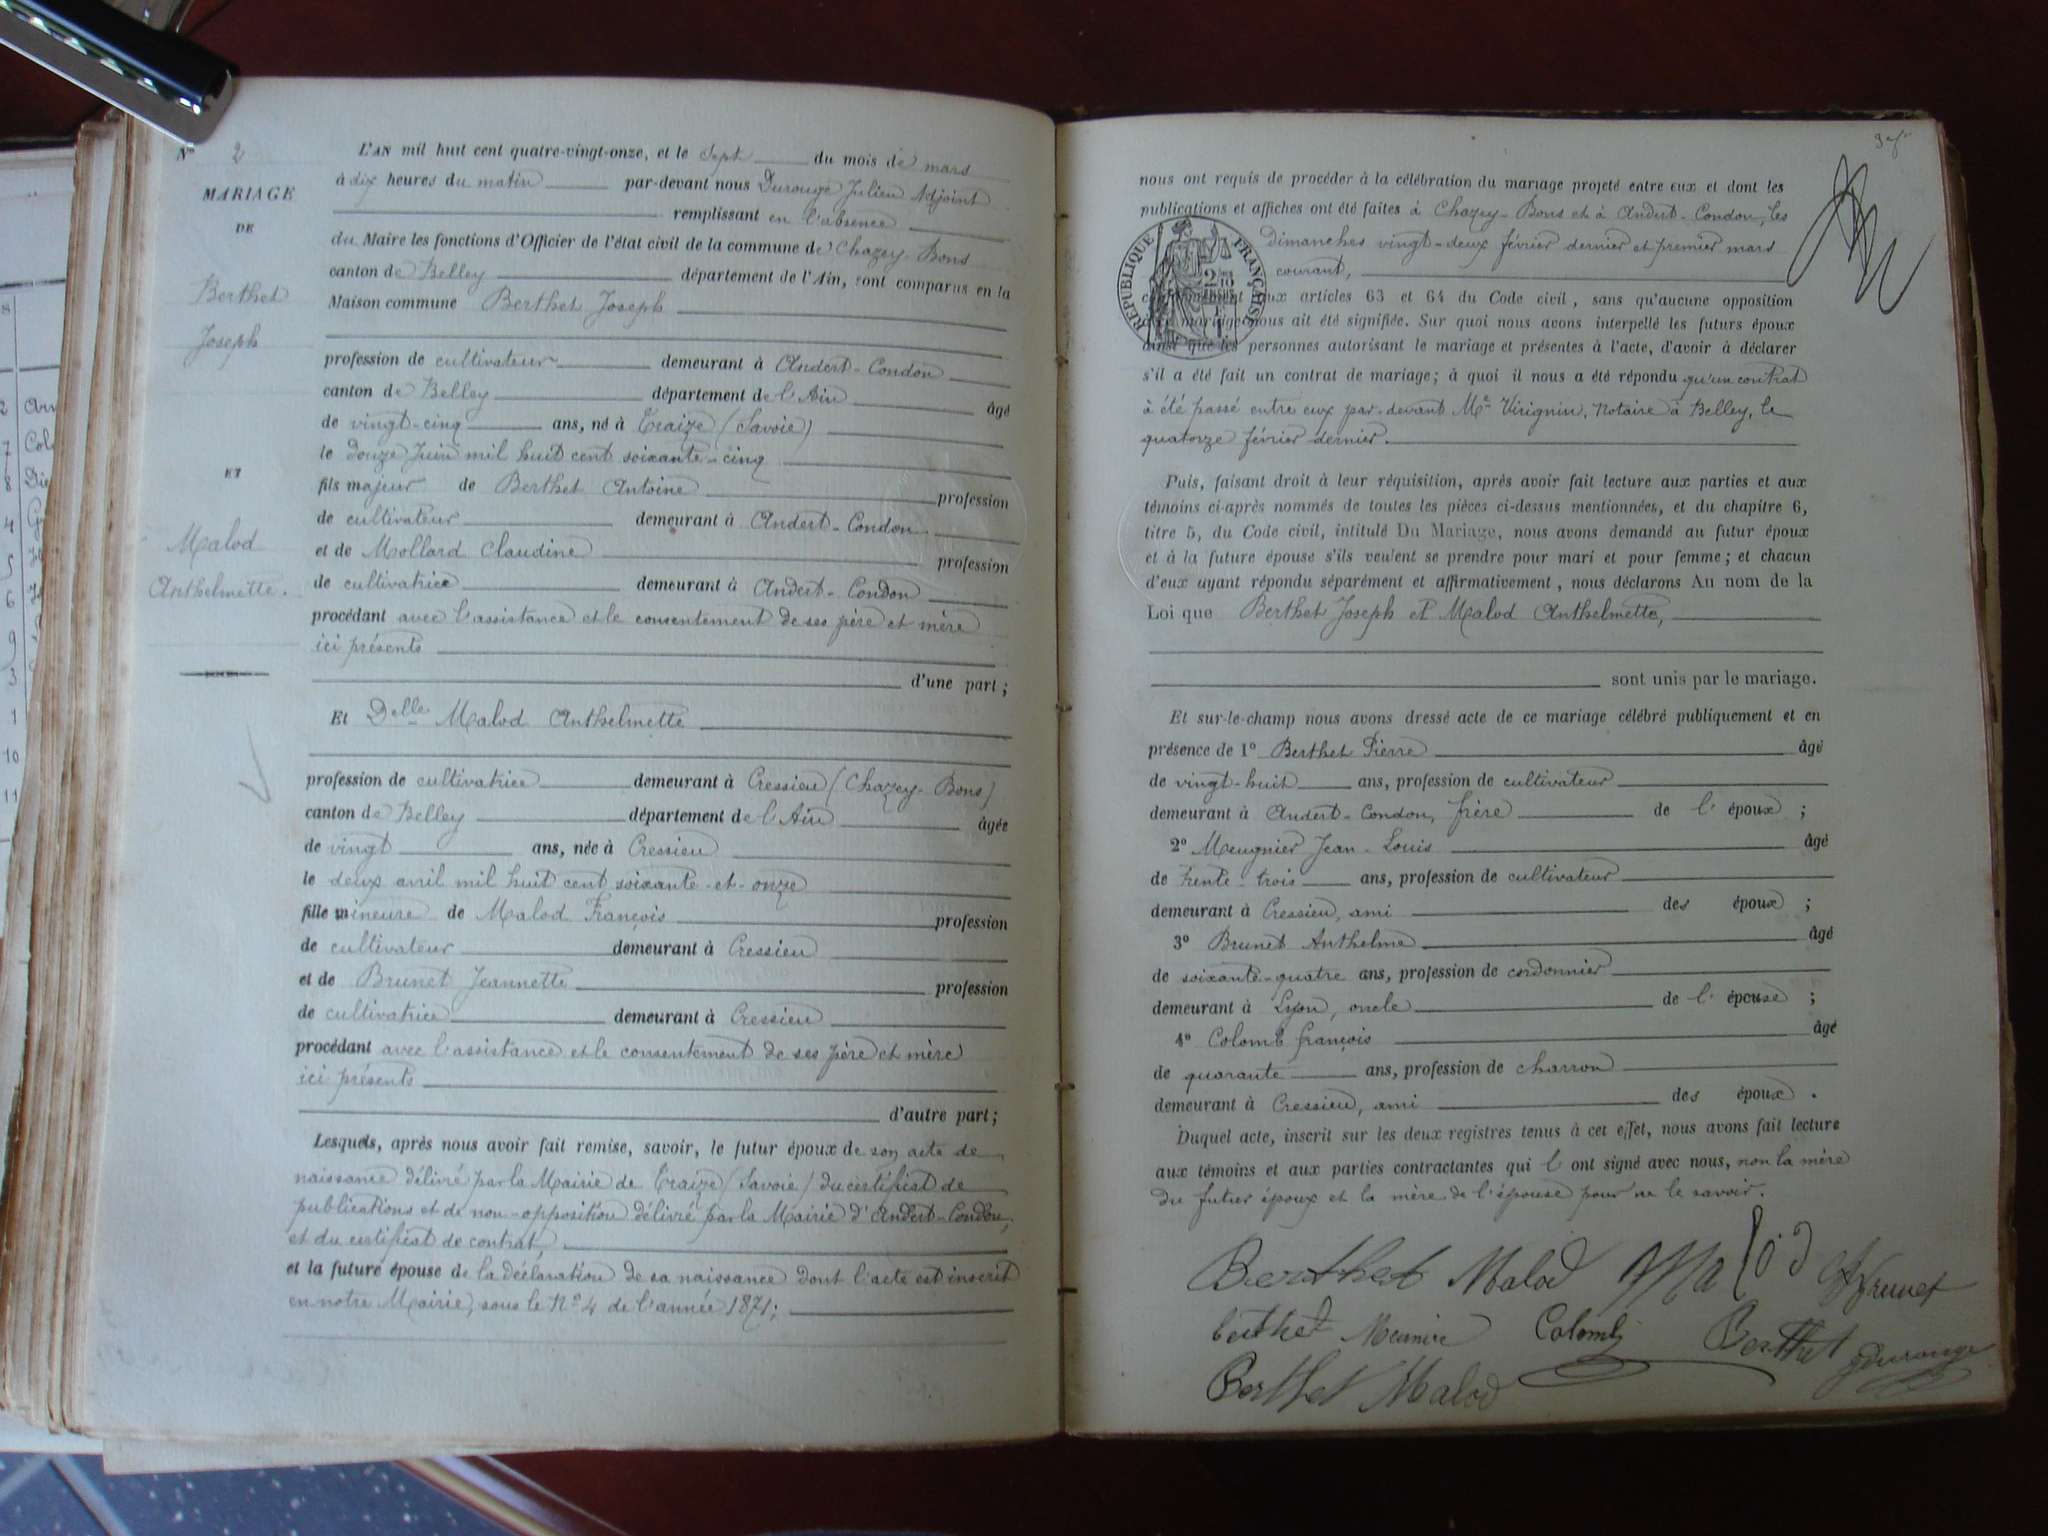 N° 2
MARIAGE
DE
Berthet
Joseph
ET
Malod
Anthelmette.
L'AN mil huit cent quatre-vingt-onze, et le Sept du mois de mars
à dix heures du matin par-devant nous Durouge Julien Adjoint
remplissant en l'absence
du Maire les fonctions d'Officier de l'état civil de la commune de Chazey-Bons
canton de Belley département de l'Ain, sont comparus en la
Maison commune Berthet Joseph
profession de cultivateur demeurant à Andert-Condon
canton de Belley département de l'Ain âgé
de vingt-cinq ans, né à Traize (Savoie)
le douze Juin mil huit cent soixante-cinq
fils majeur de Berthet Antoine profession
de cultivateur demeurant à Andert-Condon
et de Mollard Claudine profession
de cultivatrice demeurant à Andert-Condon
procédant avec l'assistance et le consentement de ses père et mère
ici présents
d'une part ;
Et Delle Malod Anthelmette
profession de cultivatrice demeurant à Cressieu (Chazey-Bons)
canton de Belley département de l'Ain âgée
de vingt ans, née à Cressieu
le deux avril mil huit cent soixante-et-onze
fille mineure de Malod François profession
de cultivateur demeurant à Cressieu
et de Brunet Jeannette profession
de cultivatrice demeurant à Cressieu
procédant avec l'assistance et le consentement de ses père et mère
ici présents
d'autre part ;
Lesquels, après nous avoir fait remise, savoir, le futur époux de son acte de
naissance délivré par la Mairie de Traize (Savoie) du certificat de
publications et de non-opposition délivré par la Mairie d'Andert-Condon,
et du certificat de contrat,
et la future épouse de la déclaration de sa naissance dont l'acte est inscrit
en notre Mairie, sous le N° 4 de l'année 1871 ;
nous ont requis de procéder à la célébration du mariage projeté entre eux et dont les
publications et affiches ont été faites à Chazey-Bons et à Andert-Condon, les
dimanches vingt-deux février dernier et premier mars
courant,
RÉPUBLIQUE FRANÇAISE
aux articles 63 et 64 du Code civil, sans qu'aucune opposition
mariage nous ait été signifiée. Sur quoi nous avons interpellé les futurs époux
ainsi que les personnes autorisant le mariage et présentes à l'acte, d'avoir à déclarer
s'il a été fait un contrat de mariage ; à quoi il nous a été répondu qu'un contrat
à été passé entre eux par-devant Me Virignin, Notaire à Belley, le
quatorze février dernier.
Puis, faisant droit à leur réquisition, après avoir fait lecture aux parties et aux
témoins ci-après nommés de toutes les pièces ci-dessus mentionnées, et du chapitre 6,
titre 5, du Code civil, intitulé Du Mariage, nous avons demandé au futur époux
et à la future épouse s'ils veulent se prendre pour mari et pour femme ; et chacun
d'eux ayant répondu séparément et affirmativement, nous déclarons Au nom de la
Loi que Berthet Joseph et Malod Anthelmette,
sont unis par le mariage.
Et sur-le-champ nous avons dressé acte de ce mariage célébré publiquement et en
présence de 1° Berthet Pierre âgé
de vingt-huit ans, profession de cultivateur
demeurant à Andert-Condon, frère de l'époux ;
2° Meugnier Jean-Louis âgé
de trente-trois ans, profession de cultivateur
demeurant à Cressieu, ami des époux ;
3° Brunet Anthelme âgé
de soixante-quatre ans, profession de cordonnier
demeurant à Lyon, oncle de l'épouse ;
4° Colomb françois âgé
de quarante ans, profession de charron
demeurant à Cressieu, ami des époux .
Duquel acte, inscrit sur les deux registres tenus à cet effet, nous avons fait lecture
aux témoins et aux parties contractantes qui l'ont signé avec nous, non la mère
du futur époux et la mère de l'épouse pour ne le savoir.
Berthet Malod Malod A Brunet
berthet Meunier Colomb Berthet J Durouge
Berthet Malod